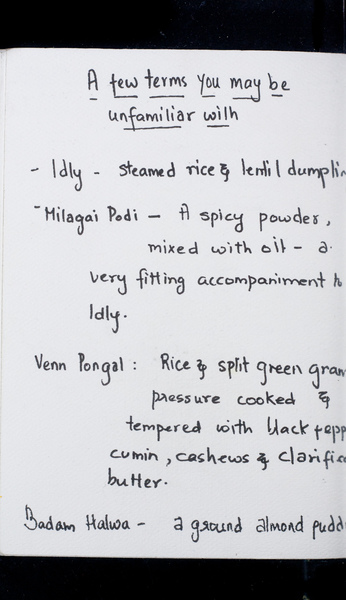 A few terms you may be
unfamiliar with
- Idly - steamed rice & lentil dumplin
- Milagai Podi - A spicy powder,
mixed with oil - a
very fitting accompaniment to
Idly.
Venn Pongal : Rice & split green gram
pressure cooked &
tempered with black pepp
cumin, cashews & clarifie
butter.
Badam Halwa - a ground almond pudd